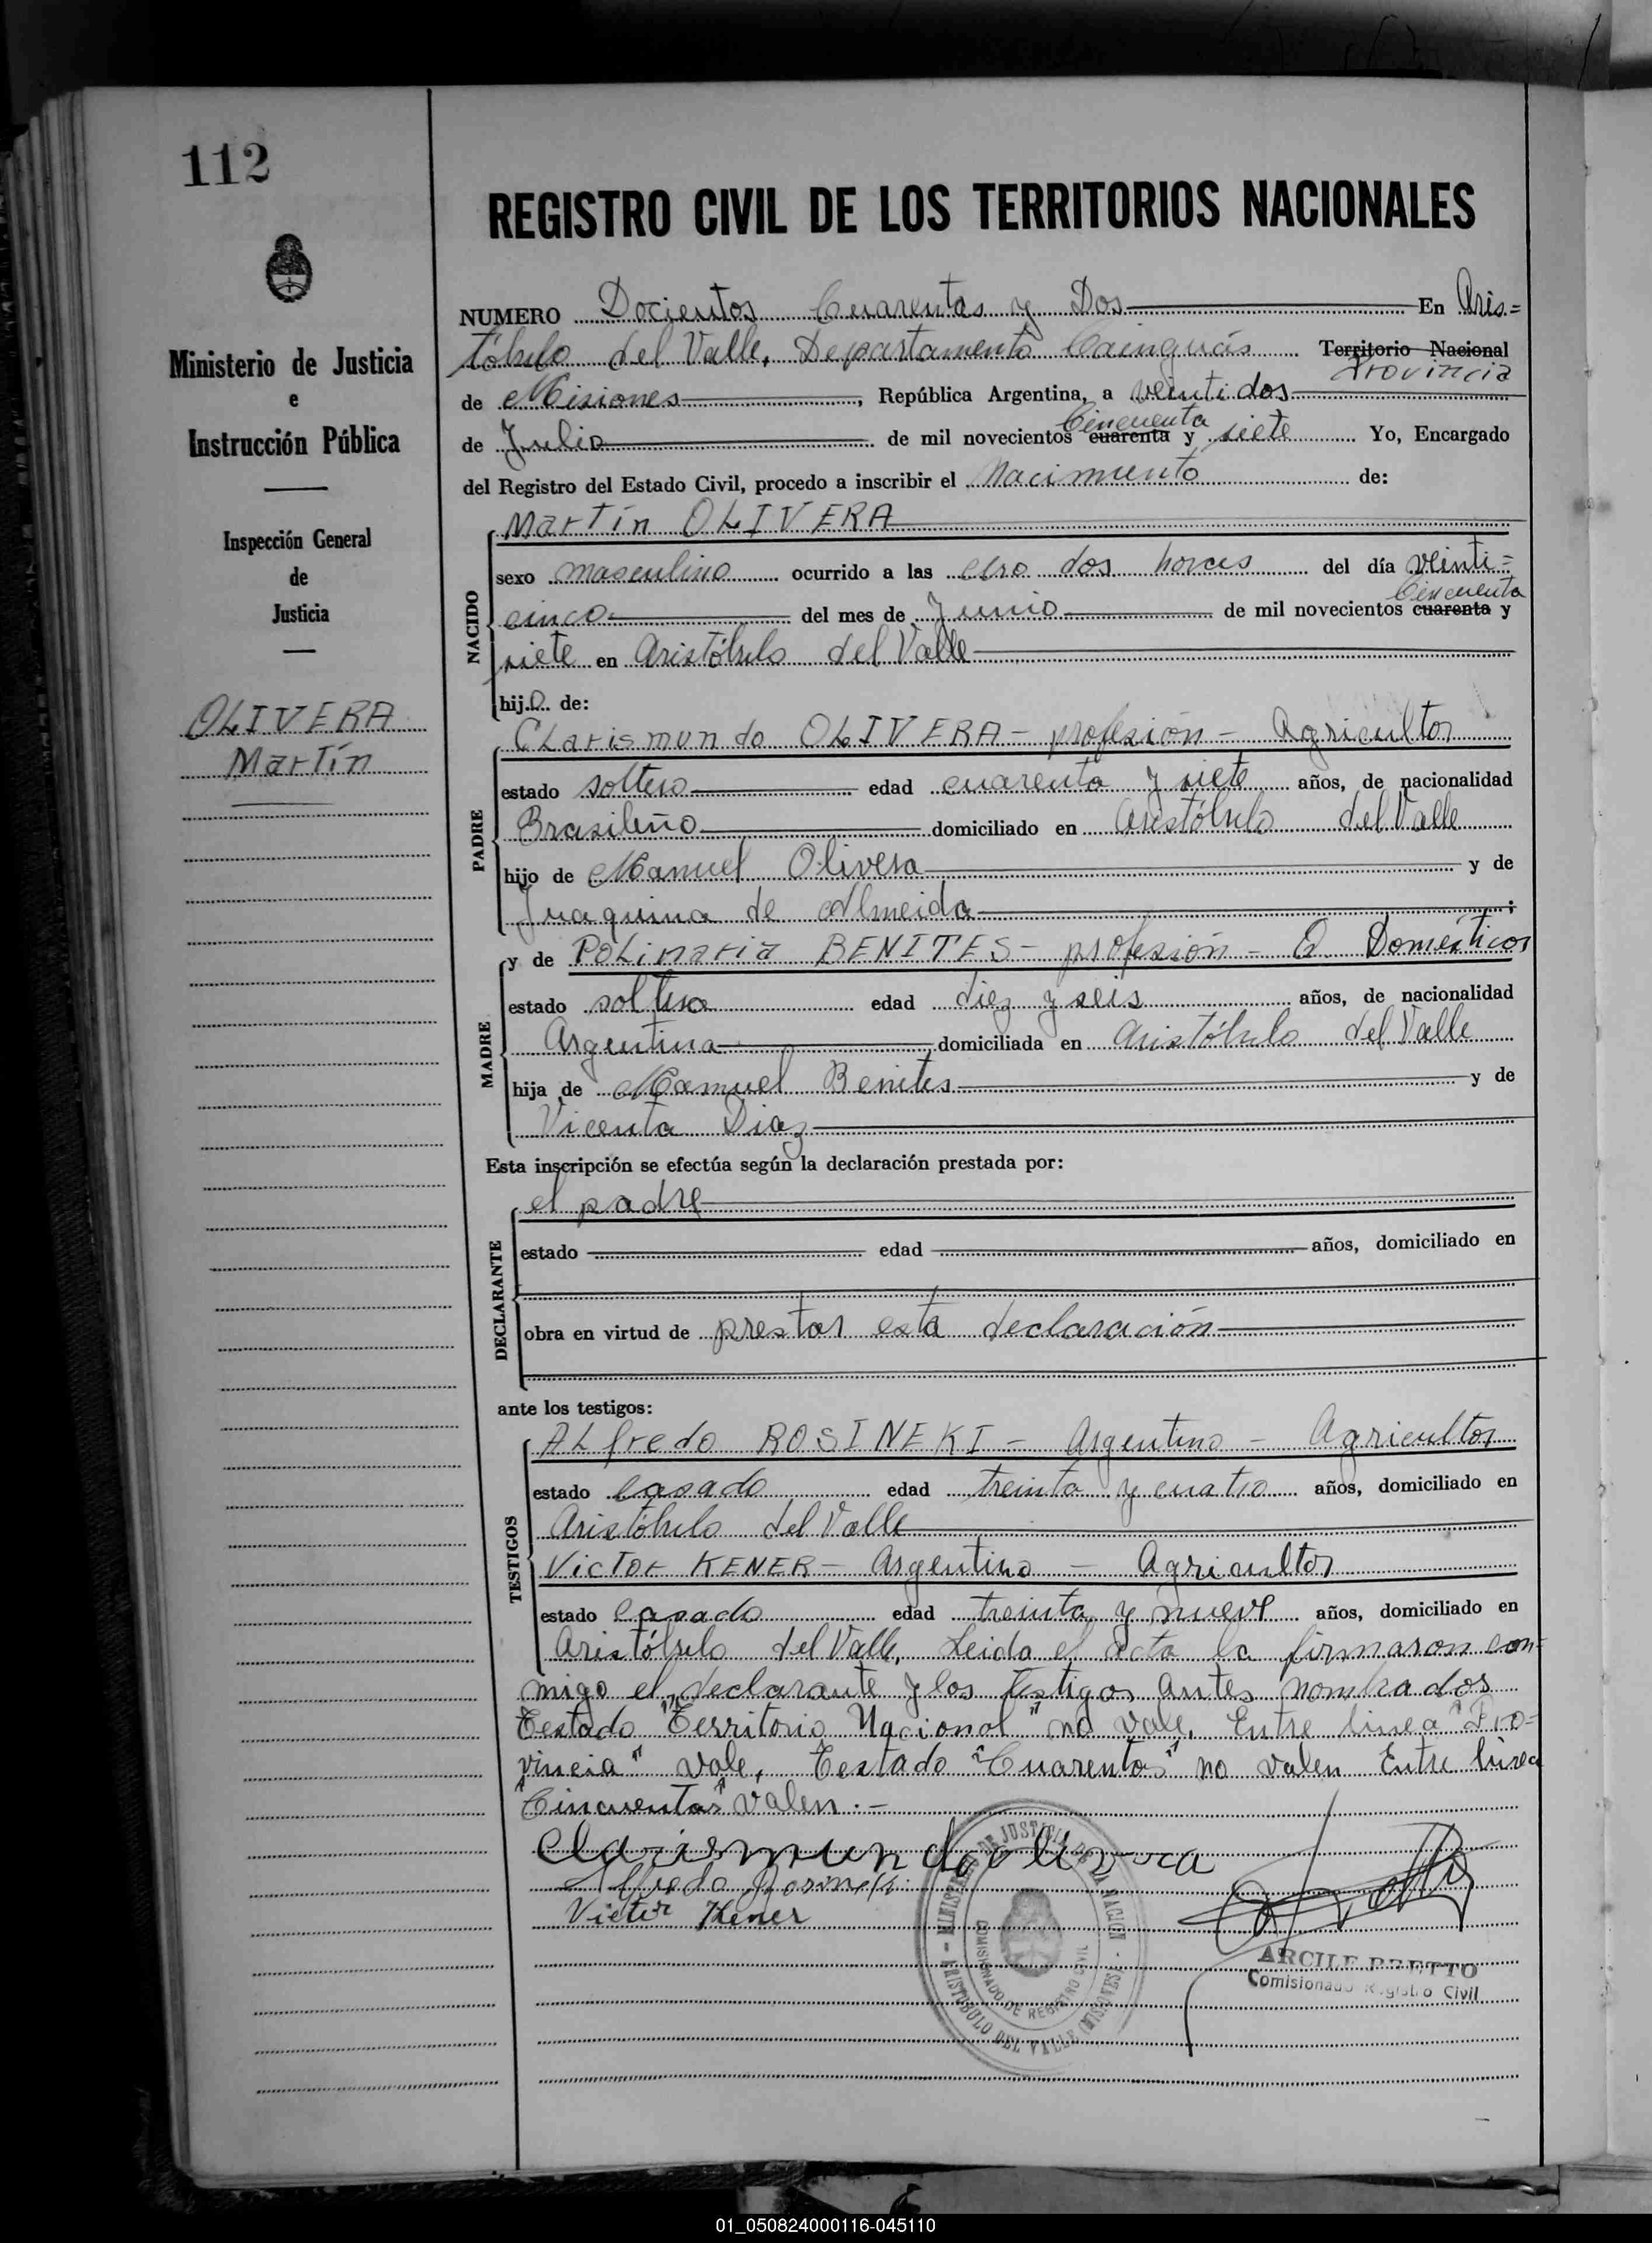 112
Ministerio de Justicia
e
Instrucción Pública
Inspección General
de
Justicia
OLIVERA
Martín
REGISTRO CIVIL DE LOS TERRITORIOS NACIONALES
NUMERO Docientos Cuarentas y Dos En Aris=
tóbulo del Valle, Departamento Cainguás Territorio Nacional
Provincia
de Misiones, República Argentina, a veintidos
Cincuenta
de Julio de mil novecientos cuarenta y siete Yo, Encargado
del Registro del Estado Civil, procedo a inscribir el Nacimiento de:
NACIDO
Martín OLIVERA
sexo masculino ocurrido a las dos horas del día veinti=
Cincuenta
cinco del mes de Junio de mil novecientos cuarenta y
siete en Aristóbulo del Valle
hijo de:
PADRE
Clarismundo OLIVERA - profesión - Agricultor
estado soltero edad cuarenta y siete años, de nacionalidad
Brasileño domiciliado en Aristóbulo del Valle
hijo de Manuel Olivera y de
Juaquina de Almeida;
MADRE
y de POLinaria BENITES - profesión - Q. Domésticos
estado soltera edad diez y seis años, de nacionalidad
Argentina, domiciliada en Aristóbulo del Valle
hija de Manuel Benites y de
Vicenta Diaz
Esta inscripción se efectúa según la declaración prestada por:
DECLARANTE
el padre
estado edad años, domiciliado en
obra en virtud de prestar esta declaración
ante los testigos:
TESTIGOS
ALfredo ROSINEKI - Argentino - Agricultor
estado Casado edad treinta y cuatro años, domiciliado en
Aristóbulo del Valle
Victor KENER - Argentino - Agricultor
estado Casado edad treinta y nueve años, domiciliado en
Aristóbulo del Valle, Leida el acta la firmaron con=
migo el declarante y los testigos antes nombrados
Testado "Territorio Nacional" no vale, Entre linea "Pro=
vincia" vale, Testado "Cuarentas" no valen Entre linea
"Cincuentas" valen.-
Clarismundo olivera
Alfredo Rosineki
Victor Kener
MINISTERIO DE JUSTICIA DE LA NACION
COMISIONADO DE REGISTRO CIVIL
ARISTOBULO DEL VALLE (MISIONES)
ARCILE BRETTO
Comisionado Registro Civil
01_050824000116-045110